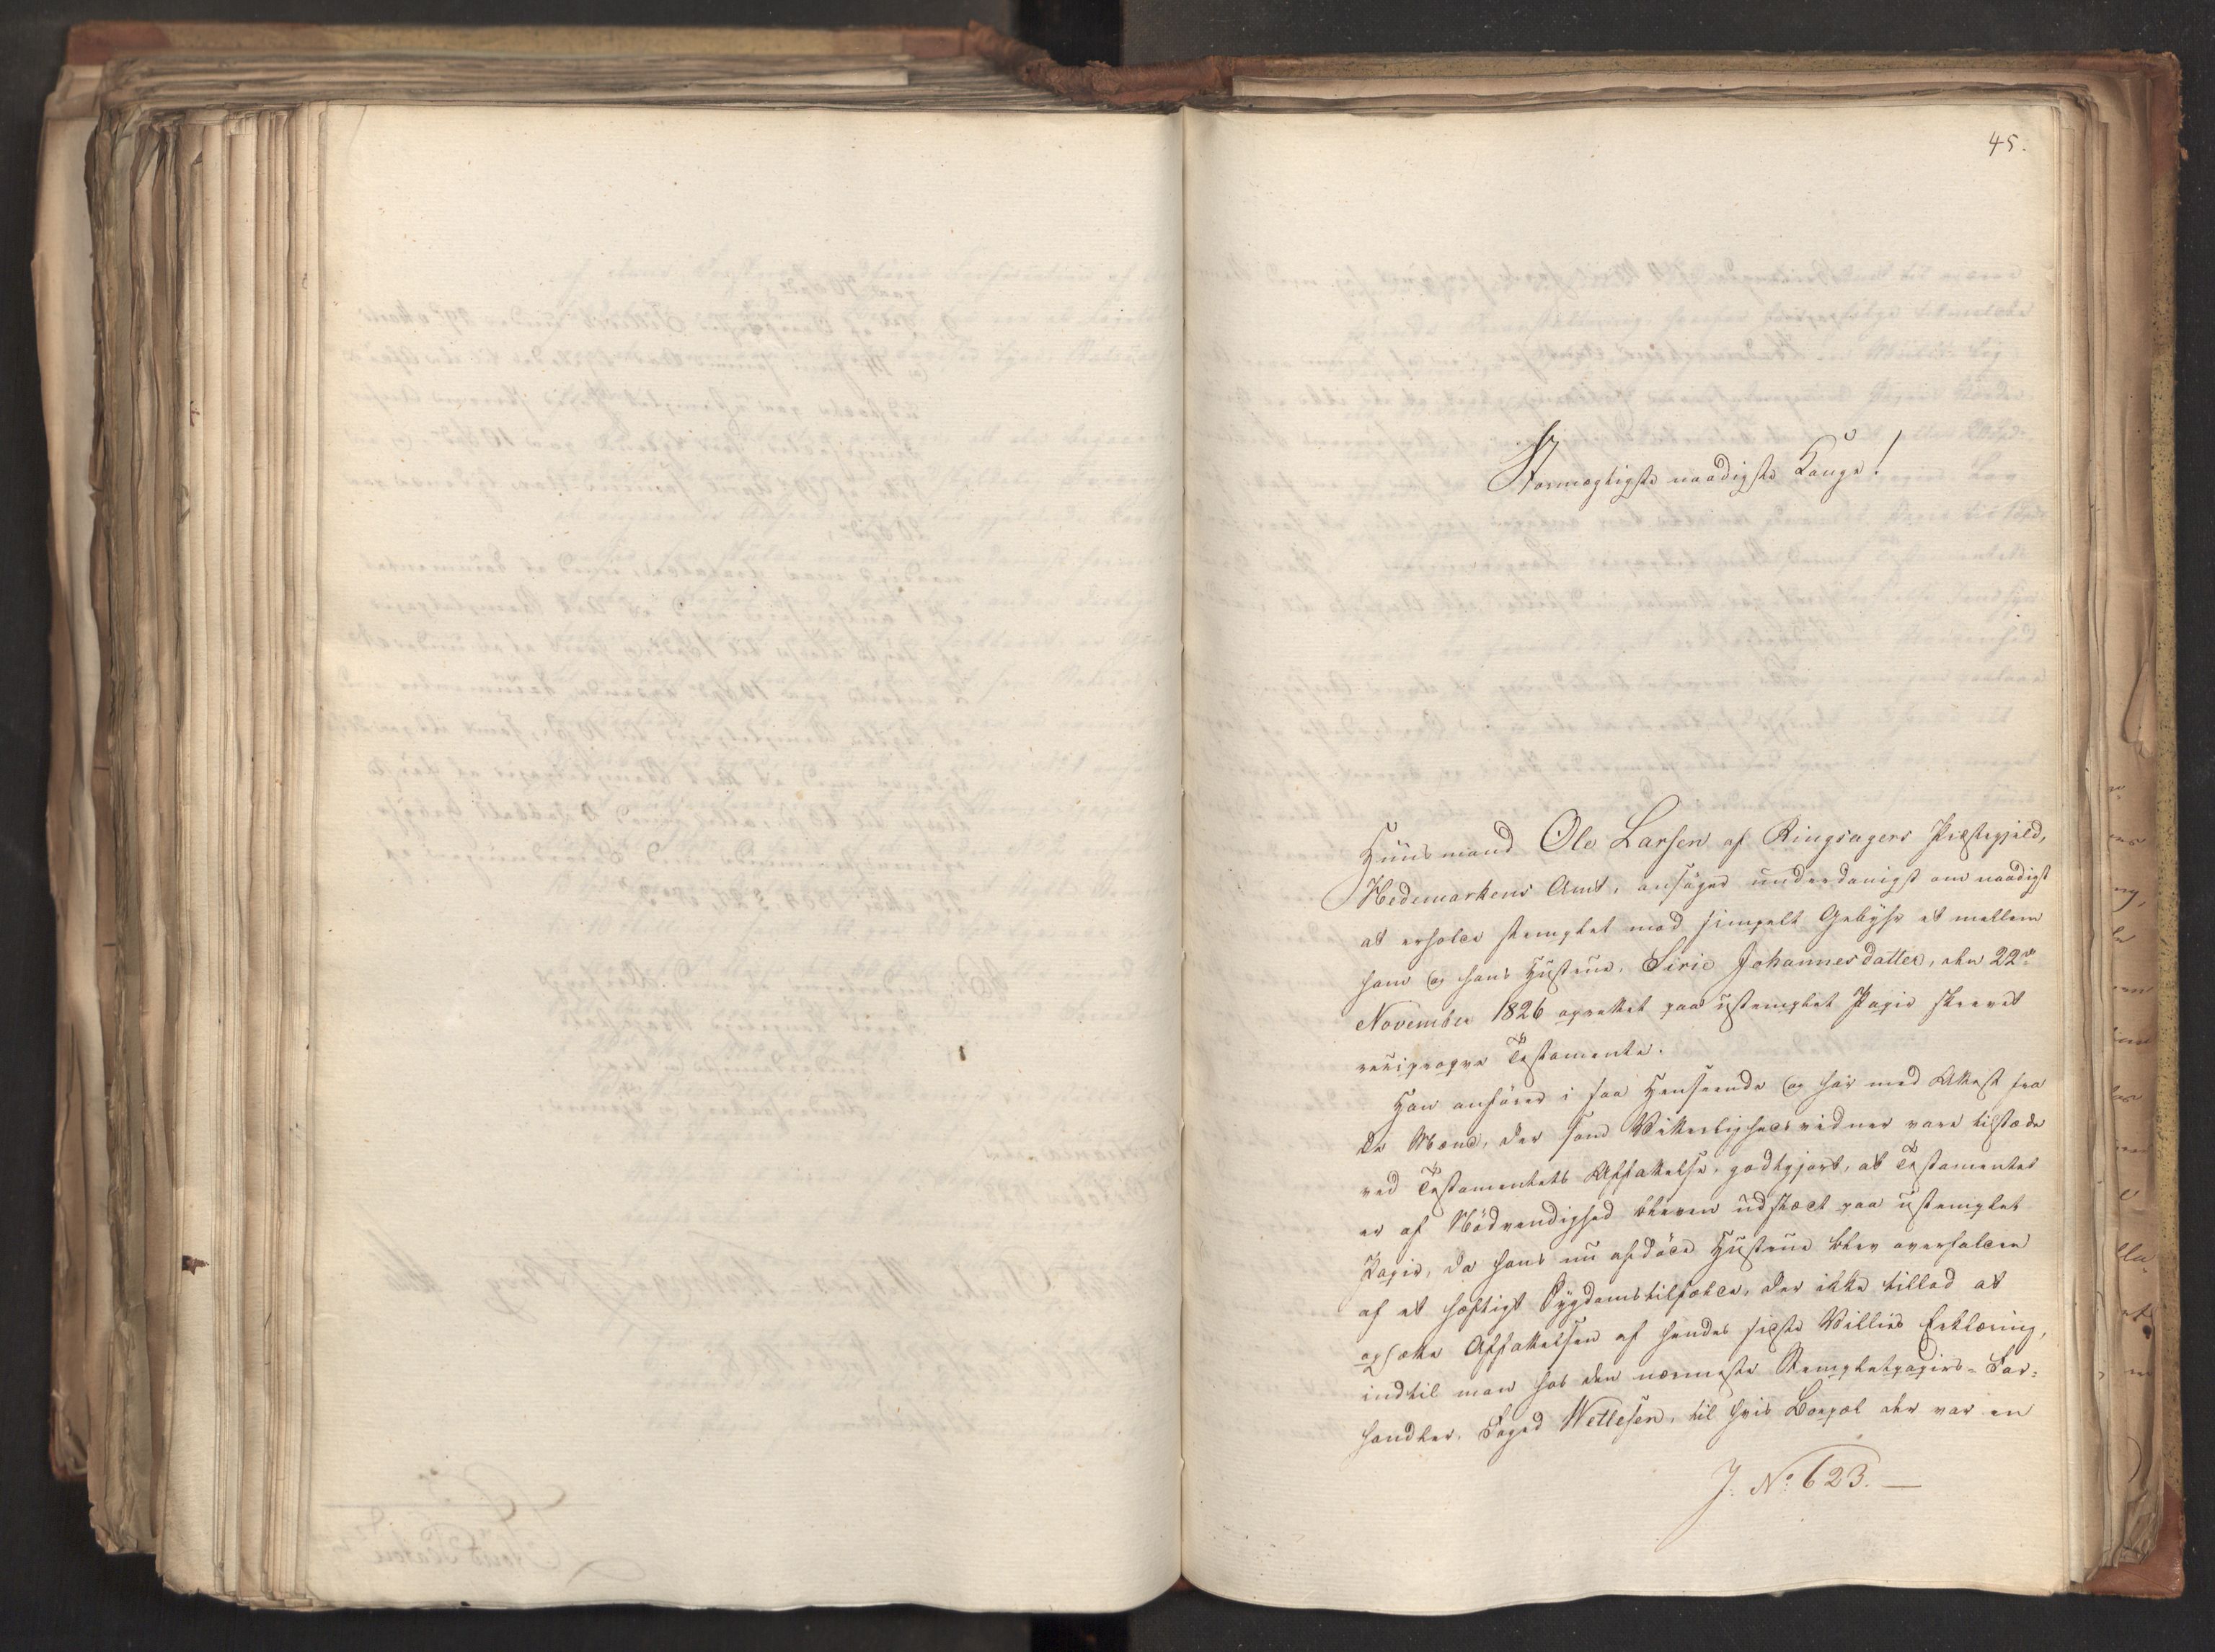 45.
Stormægtigste naadigste Konge!
Huusmand Ole Larsen af Ringsagers Præstegjeld,
Hedemarkens Amt, ansøger underdanigst om naadigst
at erholde stemplet mod simpelt Gebyhr et mellem
ham og hans Hustrue, Sirie Johannesdatter, den 22de
November 1826 oprettet paa ustemplet Papir skrevet
reciproqve Testamente.
Han anfører i saa Henseende og har med Attest fra
de Mænd, der som Vitterlighedsvidner vare tilstæde
ved Testamentets Affattelse, godtgjort, at Testamentet
er af Nødvendighed bleven udstædt paa ustemplet
Papir, da hans nu afdøde Hustrue blev overfalden
af et hæftigt Sygdomstilfælde, der ikke tillod at
opsætte Affattelsen af hendes sidste Villies Erklæring,
indtil man hos den nærmeste Stempletpapirs-For-
handler, Foged Wetlesen, til hvis Bopæl der var en
J. No 623. —